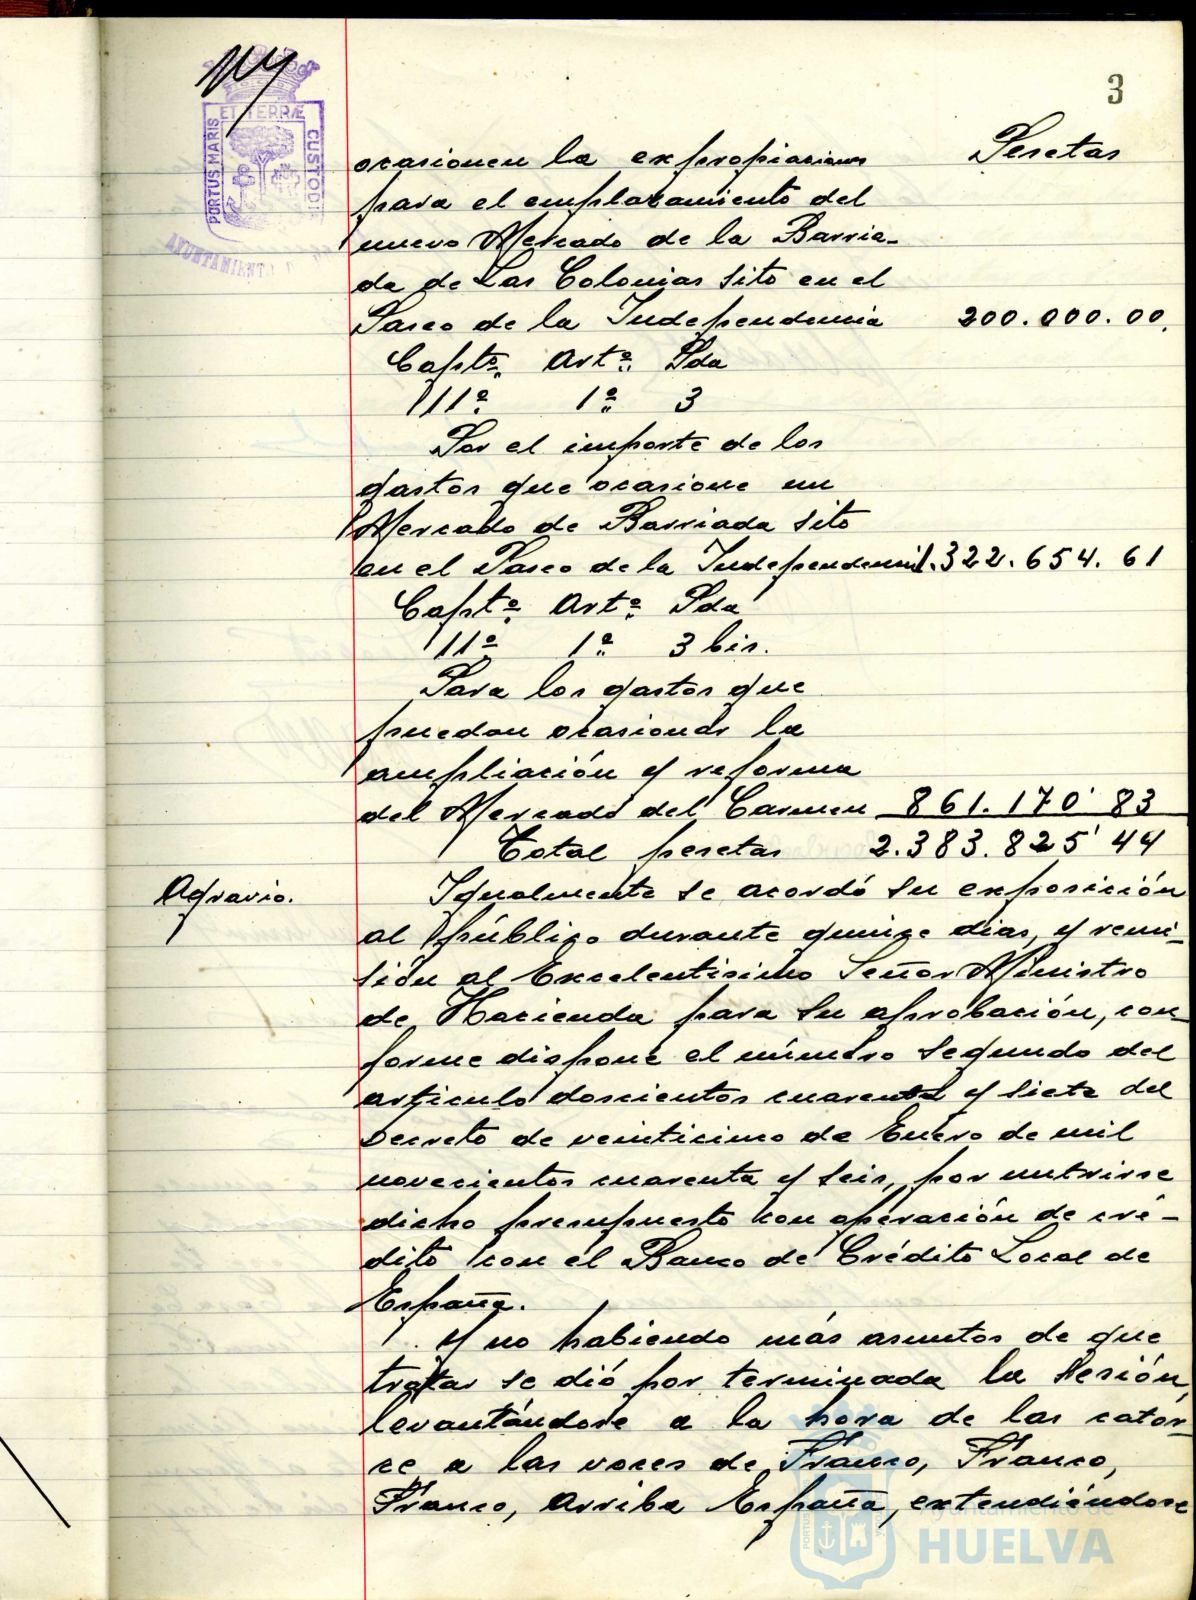 3
PORTUS MARIS
ET TERRÆ
CUSTODIA
AYUNTAMIENTO
Pesetas
ocasionen la expropiaciones
para el emplazamiento del
nuevo Mercado de la Barria-
da de Las Colonias sito en el
Paseo de la Independencia 200.000.00,
Capto. Arto. Pda
111º 1º 3
Por el importe de los
gastos que ocasione un
Mercado de Barriada sito
en el Paseo de la Independencia 1.322.654.61
Capto. Arto. Pda
11º 1º 3 bis.
Para los gastos que
puedan ocasionar la
ampliación y reforma
del Mercado del Carmen 861.170'83
Total pesetas 2.383.825'44
Agravio.
Igualmente se acordó su exposición
al público durante quince dias, y remi-
sión al Excelentisimo Señor Ministro
de Hacienda para su aprobación, con-
forme dispone el número segundo del
articulo doscientos cuarenta y siete del
Decreto de veinticinco de Enero de mil
novecientos cuarenta y seis, por nutrirse
dicho presupuesto con operación de cré-
dito con el Banco de Crédito Local de
España.
Y no habiendo más asuntos de que
tratar se dió por terminada la sesión,
levantándose a la hora de las cator-
ce a las voces de Franco, Franco,
Franco, Arriba España, extendiéndose
Ayuntamiento de
HUELVA